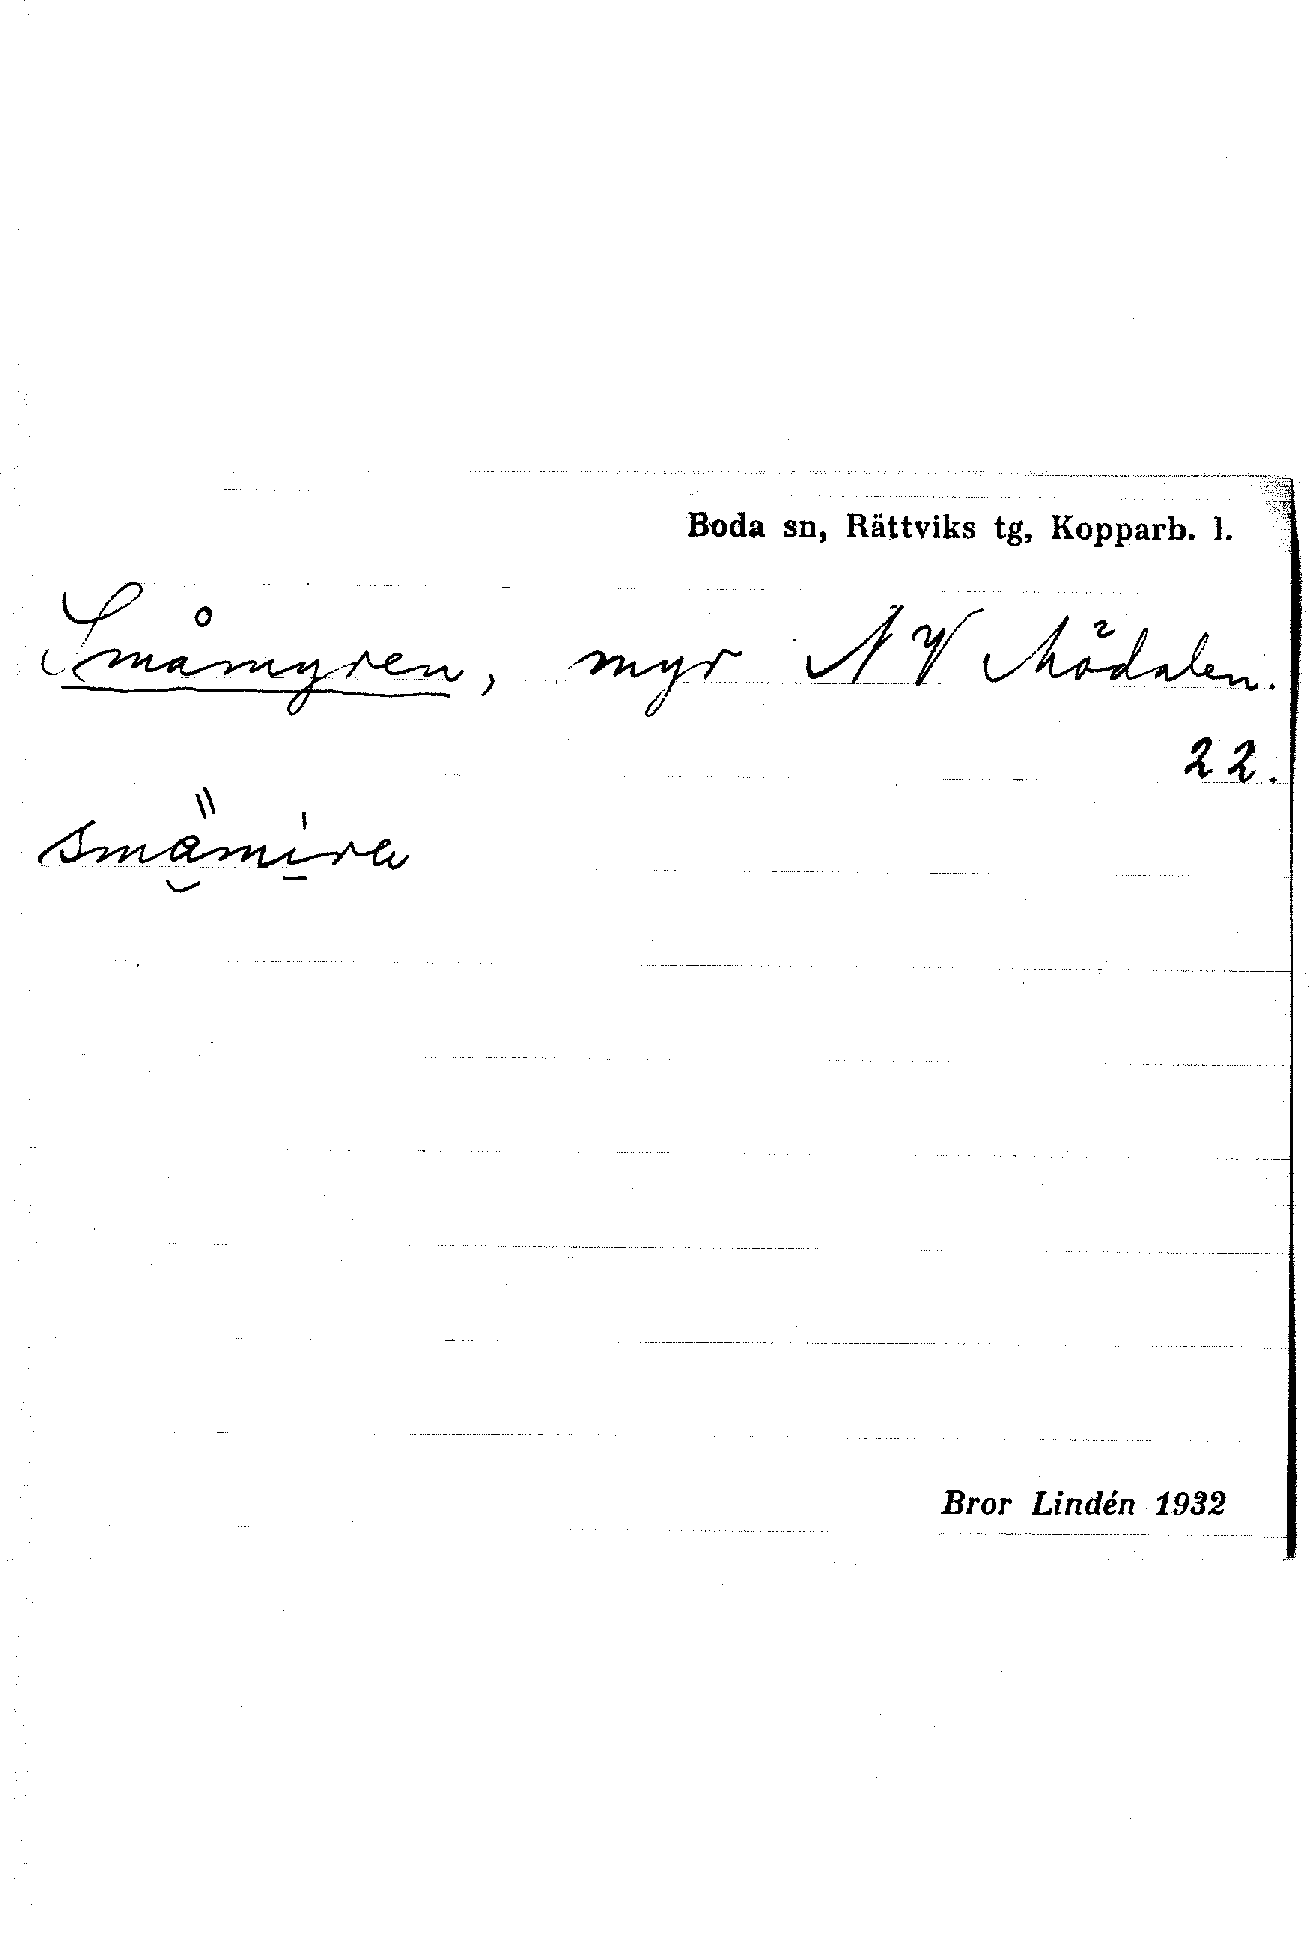 Boda sn, Rättviks tg, Kopparb. l.
Småmyren, myr NV Mödalen.
22.
smämira
Bror Lindén 1932